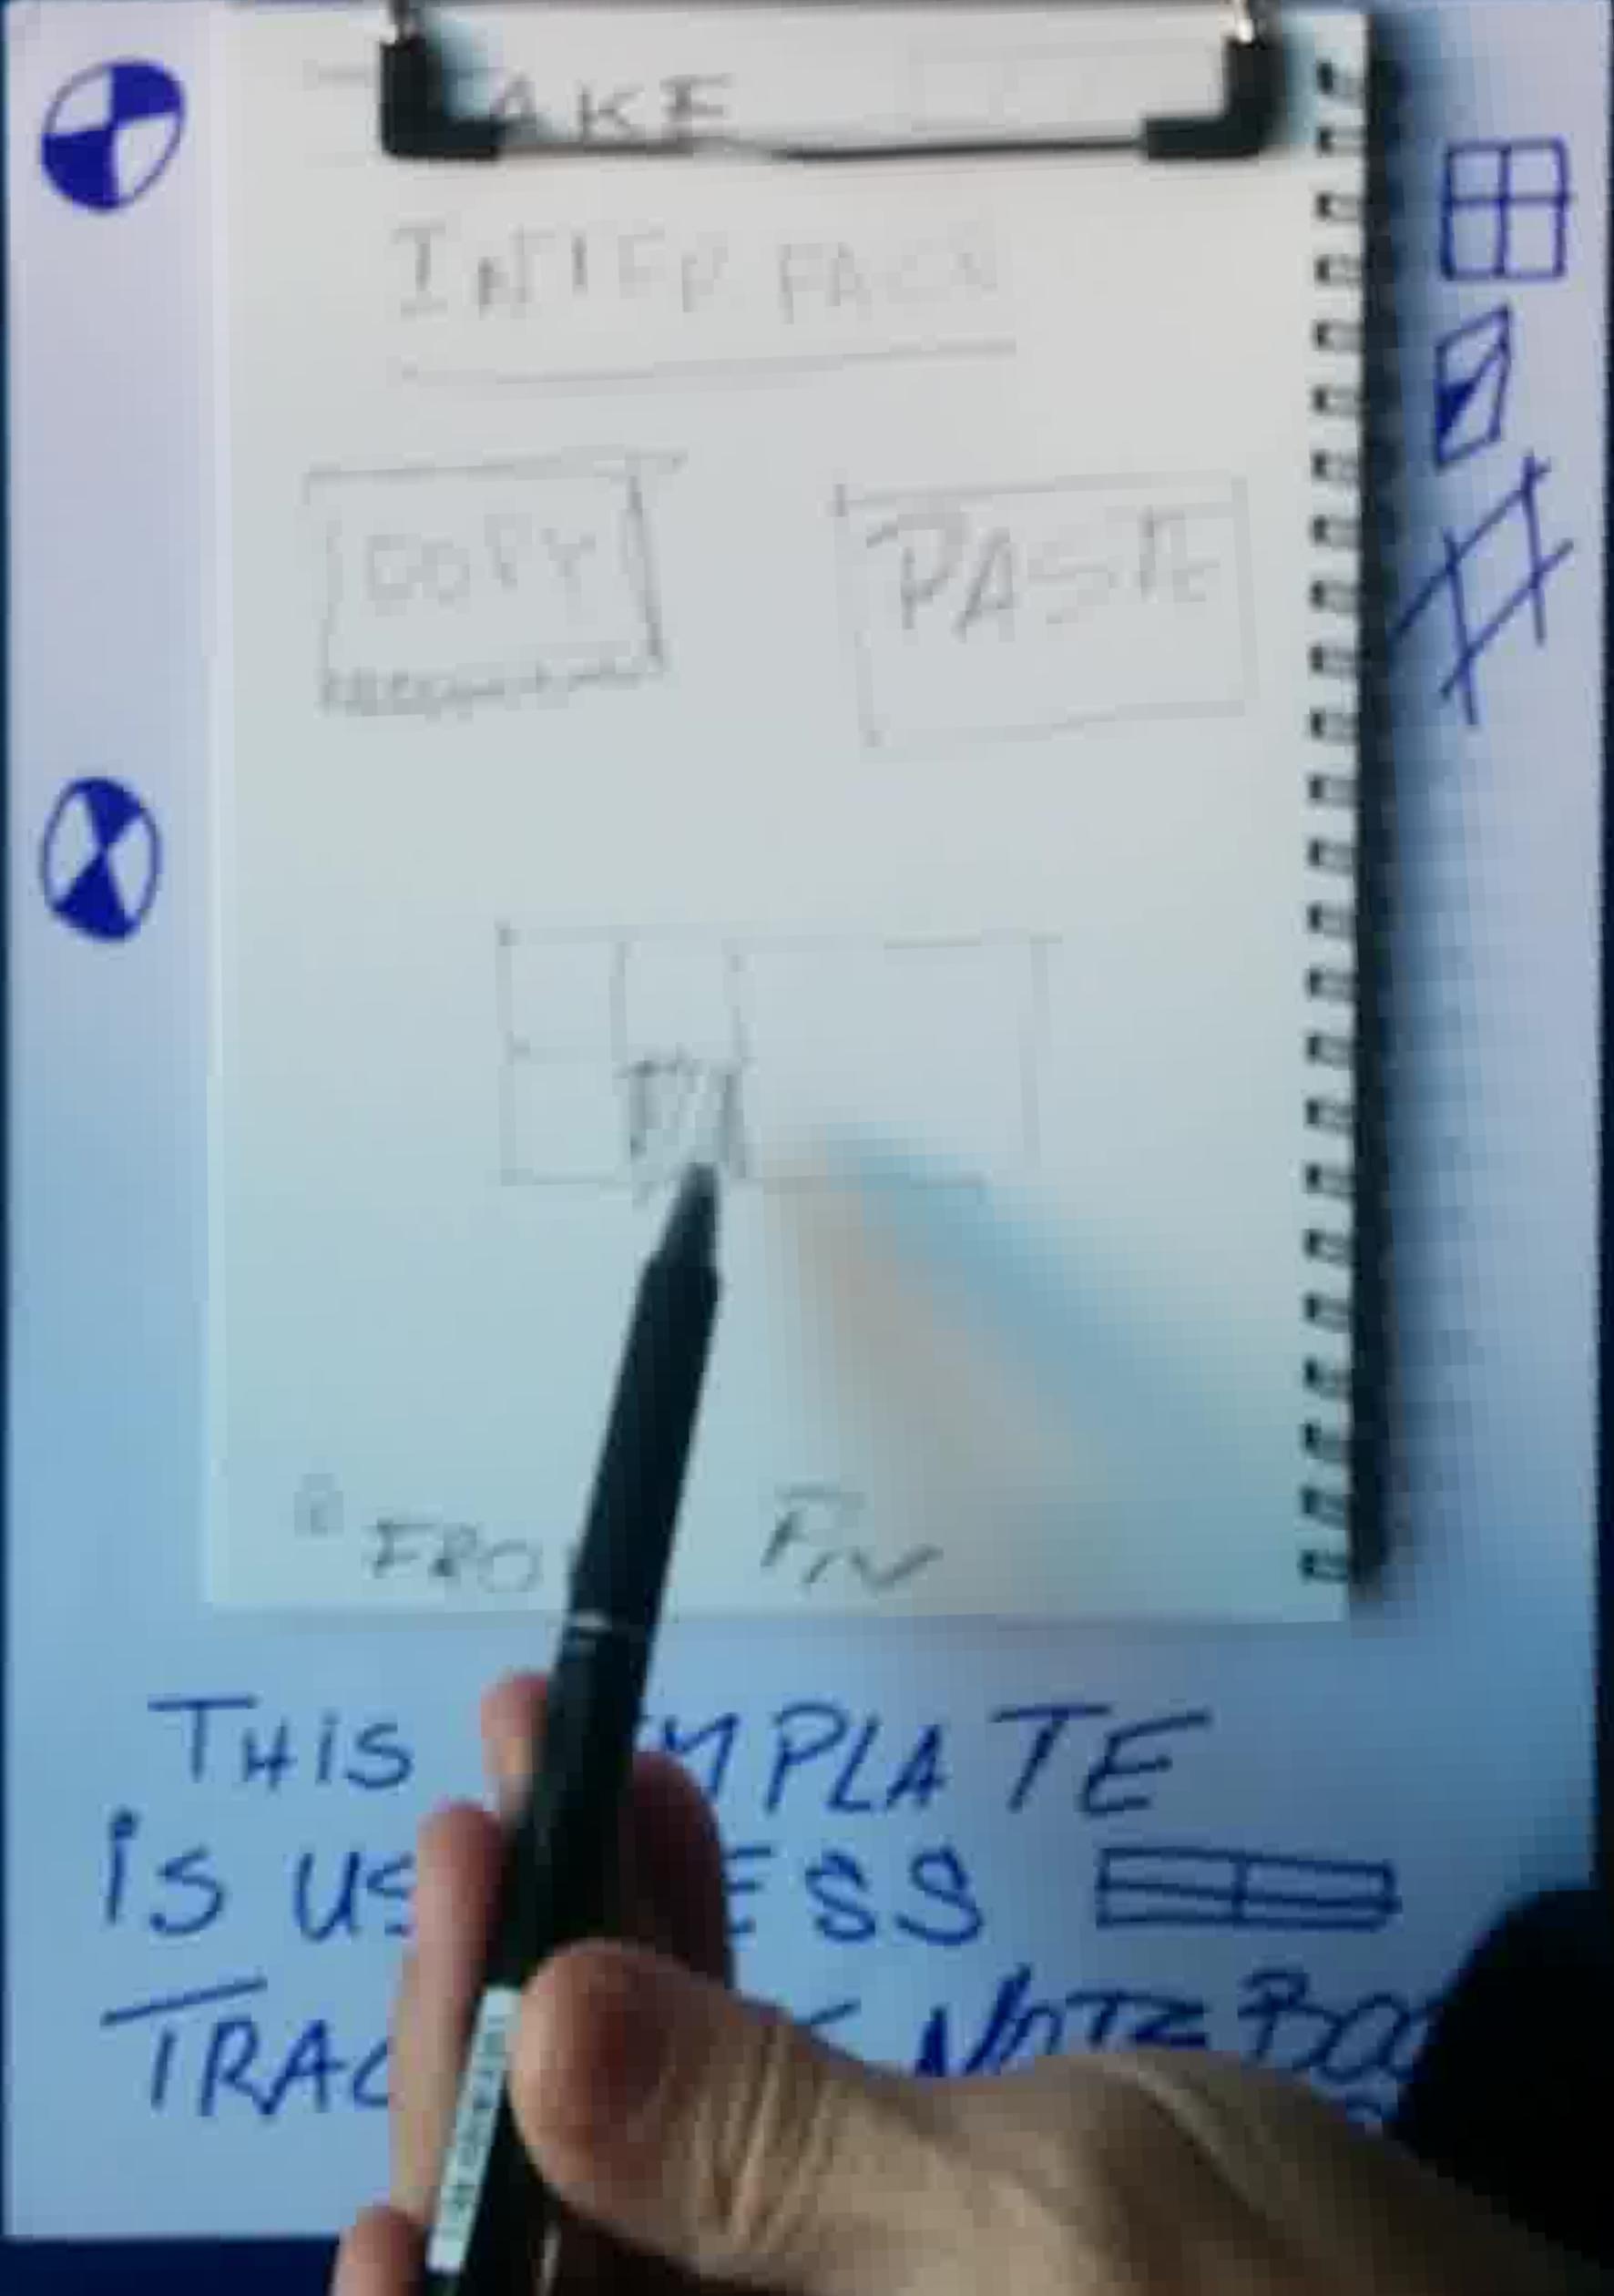 AKE
INTERFACE
COPY PASTE
THIS MPLATE
is US ESS
TRAC NOTEBOO